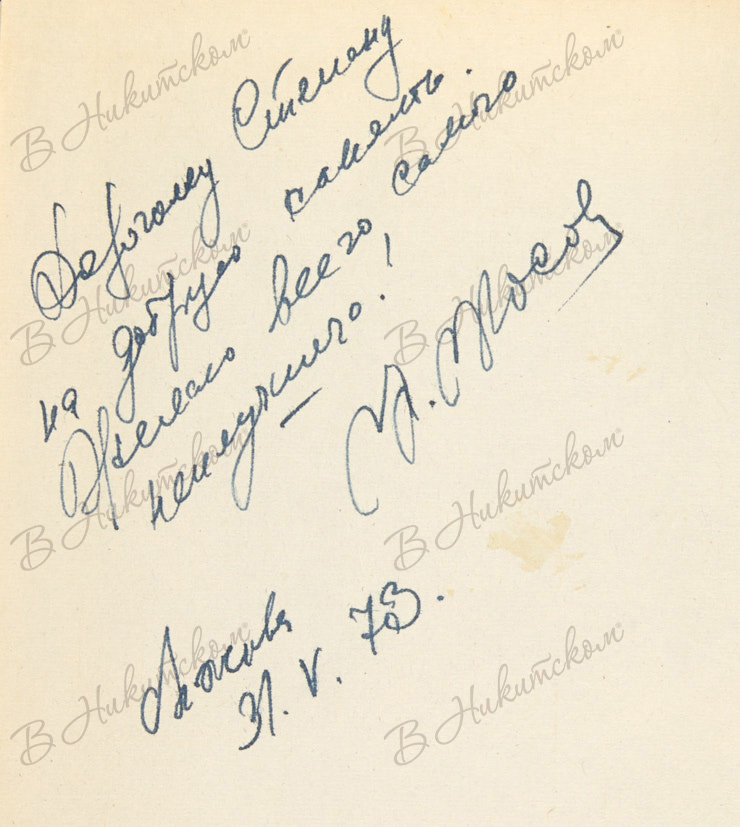 Дорогому Степану
на добрую память.
Желаю всего самого
наилучшего!
Н. Носов
31.V.73.
В Никитском
В Никитском
В Никитском
В Никитском
В Никитском
В Никитском
В Никитском
В Никитском